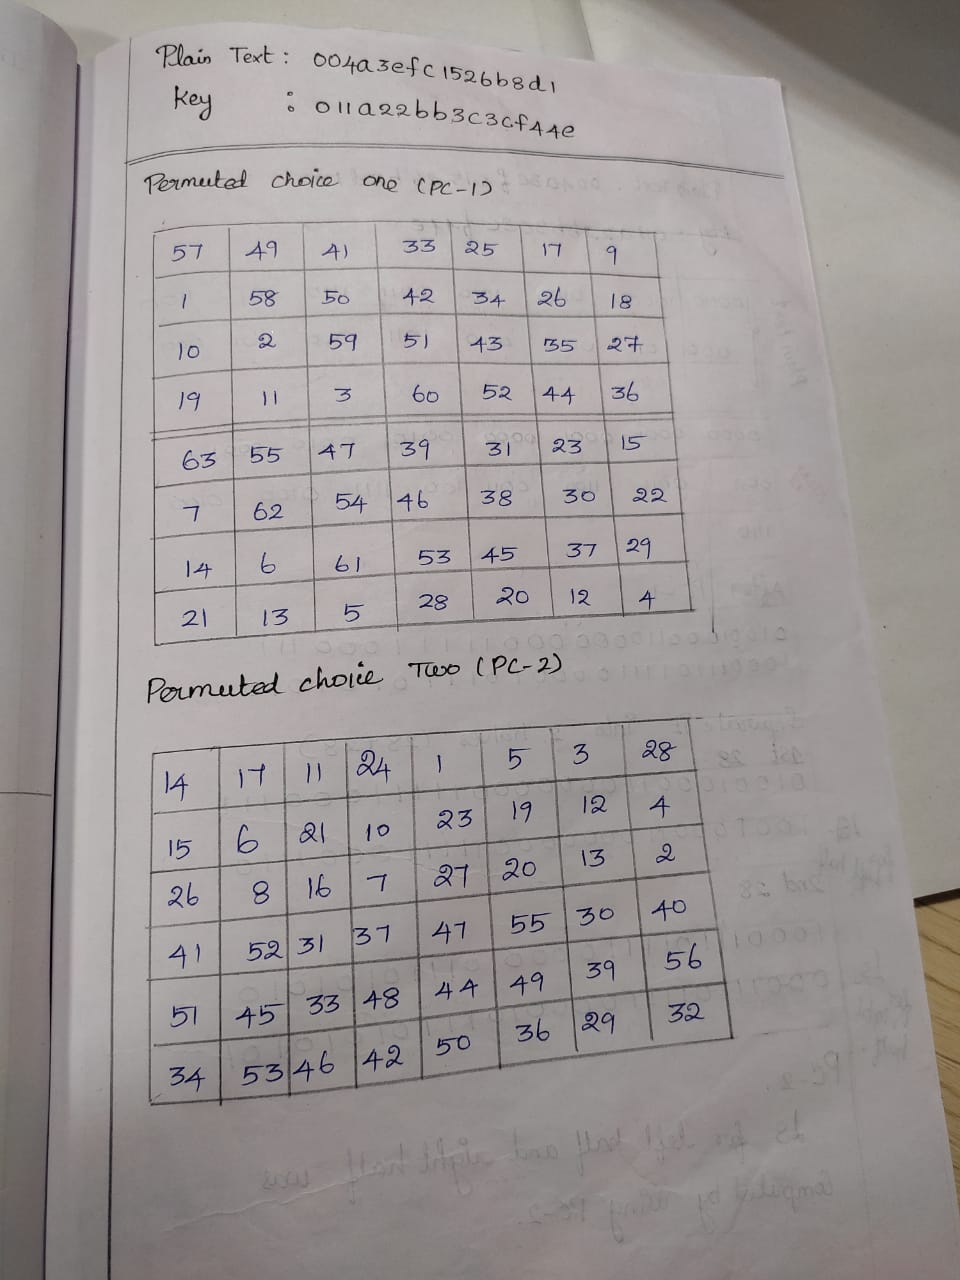 Plain Text : 004a3efc1526b8d1
Key : 011a22bb3c3cf44e
Permuted choice one (PC-1)
57 49 41 33 25 17 9
1 58 50 42 34 26 18
10 2 59 51 43 35 27
19 11 3 60 52 44 36
63 55 47 39 31 23 15
7 62 54 46 38 30 22
14 6 61 53 45 37 29
21 13 5 28 20 12 4
Permuted choice Two (PC-2)
14 17 11 24 1 5 3 28
15 6 21 10 23 19 12 4
26 8 16 7 27 20 13 2
41 52 31 37 47 55 30 40
51 45 33 48 44 49 39 56
34 53 46 42 50 36 29 32